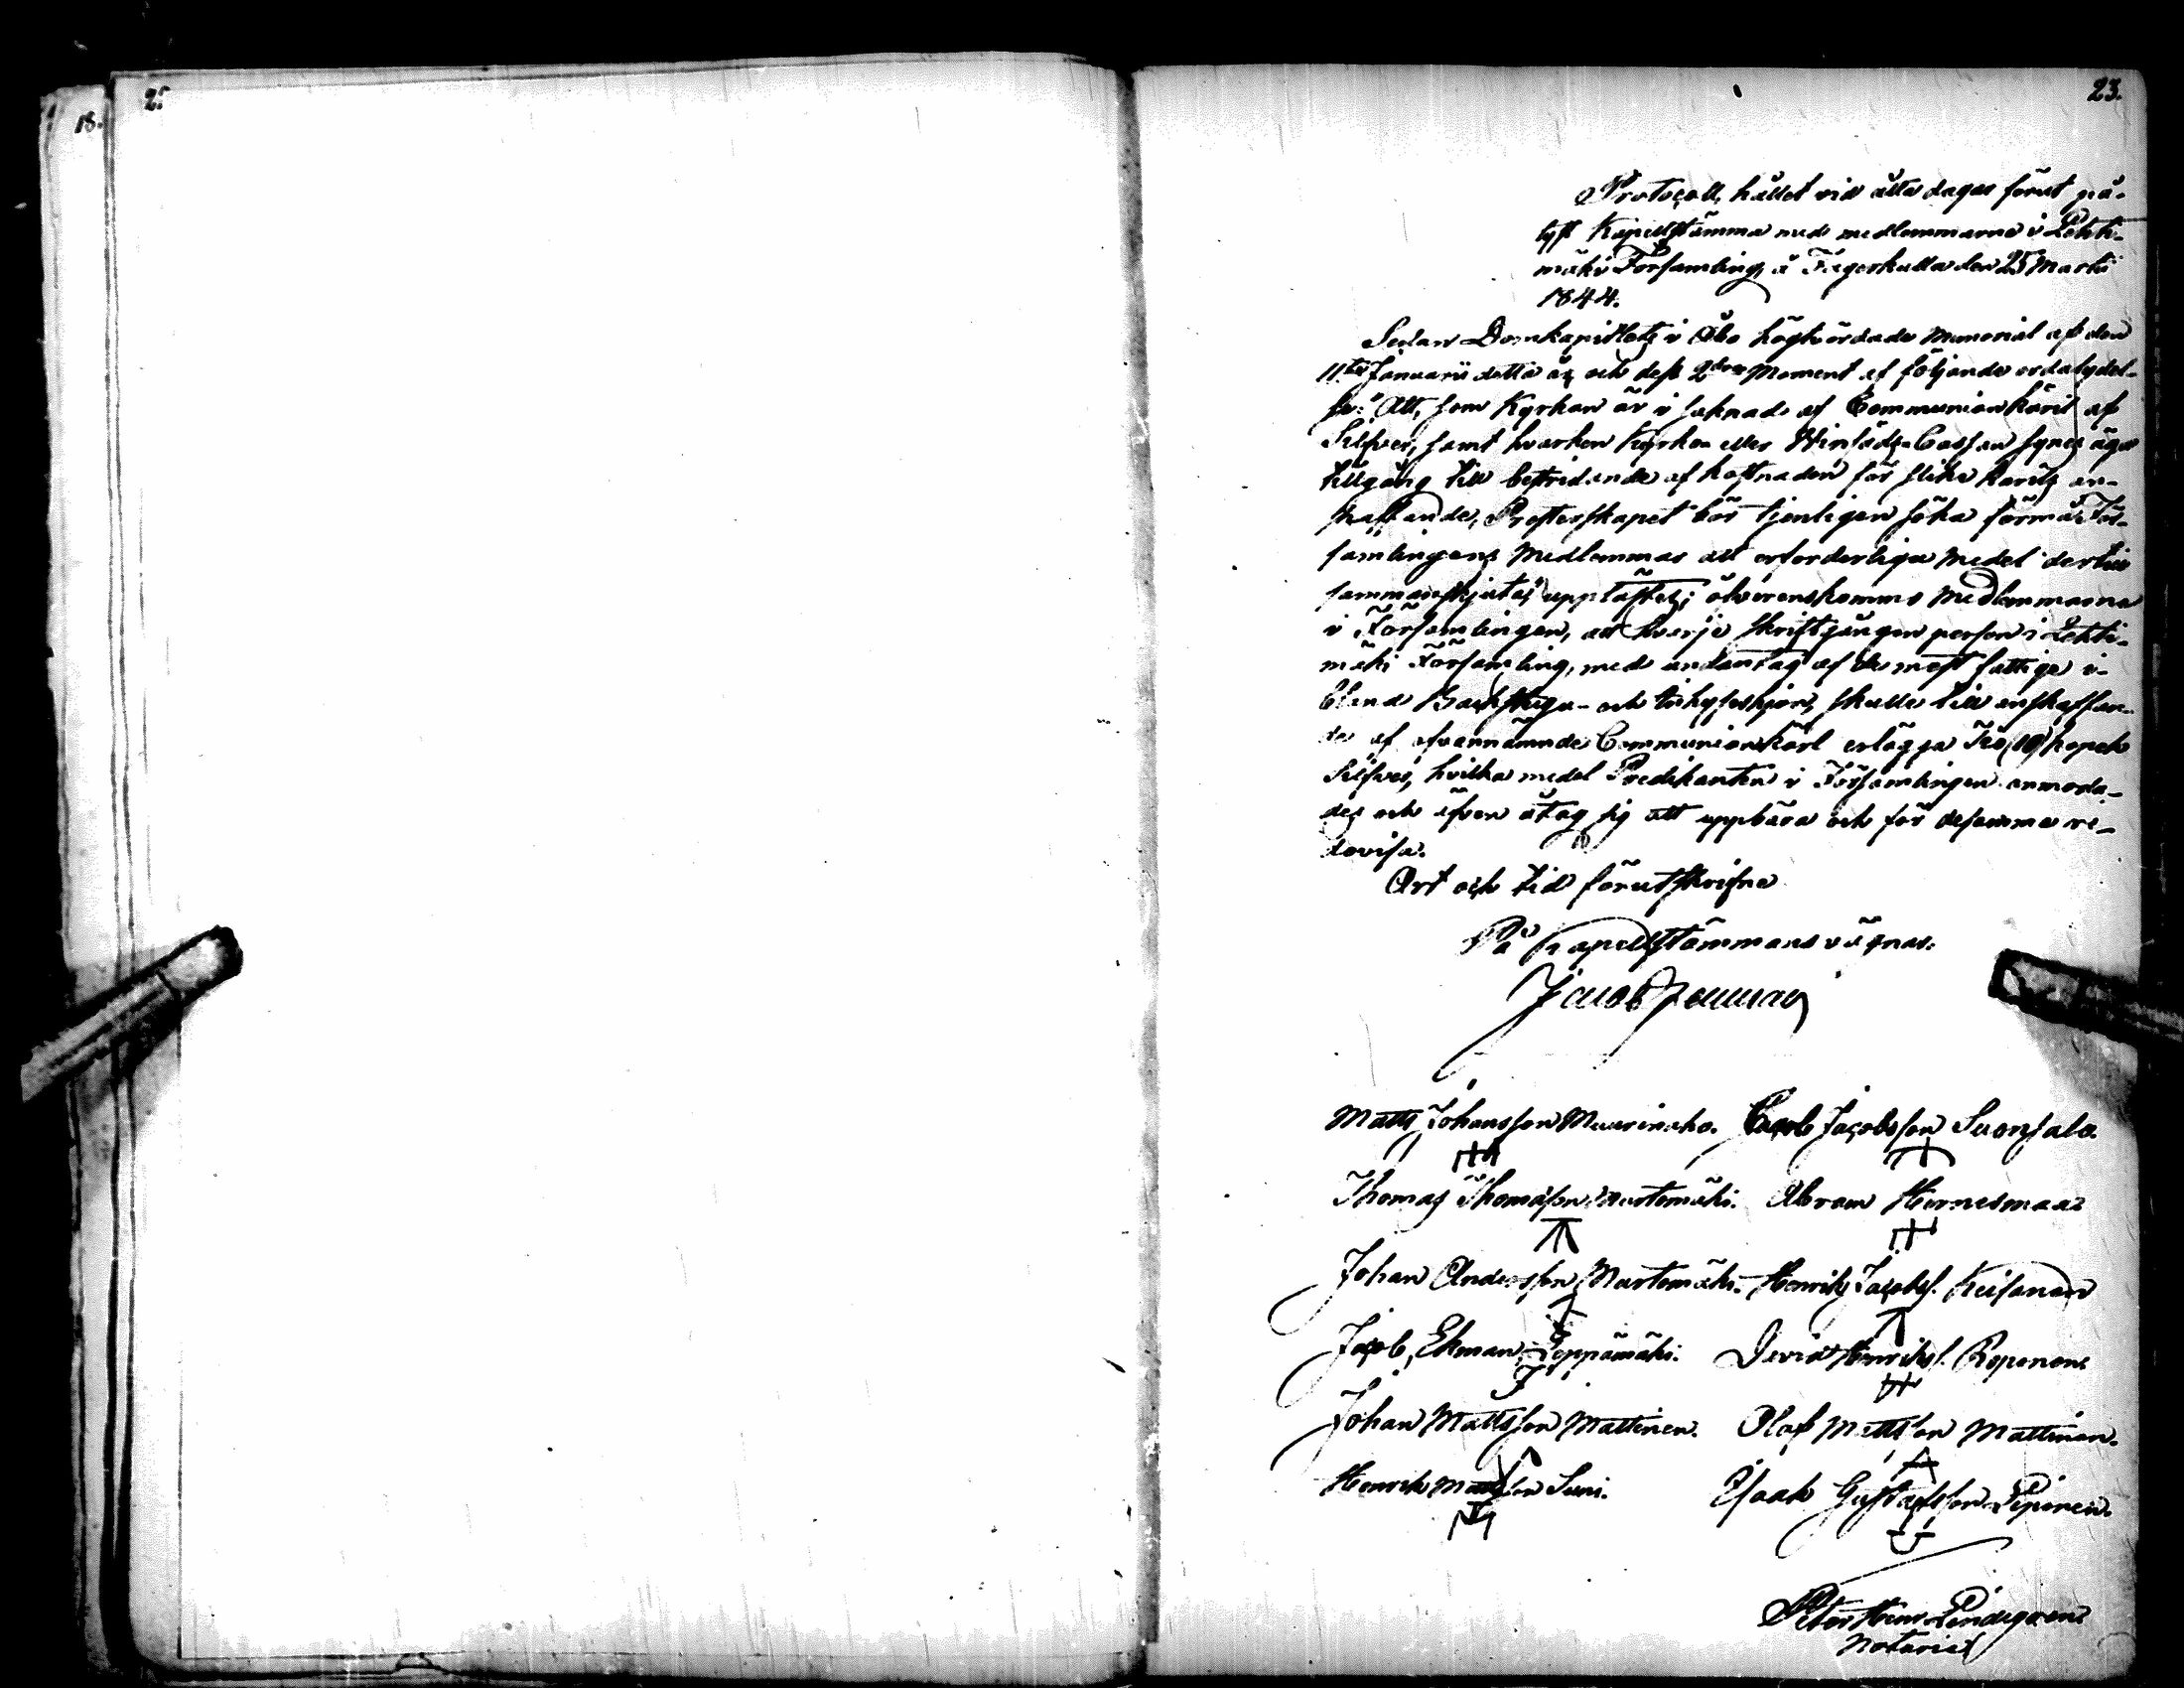 18.
23.
Protocoll, hållet vid åtta dagar förut på-
lyst Kapellstämma med medlemmarne i Lehti-
mäki Församling, å Fägerkulla den 25 Martii
1844.
Sedan Domkapitlets i Åbo högvördade Memorial af den
11te Januarii detta år, och dess 2dra Moment af följande ordalydel-
se: "Att, som Kyrkan är i saknad af Communionkäril af
Silfver, samt hvarken Kyrko- eller Cassan synes äga
tillgång till bestridande af kostnaden för slike kärils an-
skaffande, Presterskapet bör tjenligen söka förmå För-
samlingens Medlemmar att erforderliga medel dertill
sammanskjuta," upplästes; öfverenskommo Medlemmarne
i Församlingen, att hvarje skriftgången person i Lehti-
mäki Församling, med undantag af de mest fattige i-
bland Backstugu- och inhyseshjon, skulle till anskaffan-
de af ofvannämnde Communionkärl erlägga Tio (10) kopek
Silfver, hvilka medel Predikanten i Församlingen anmoda-
des och äfven åtog sig att uppbära och för desamma re-
dovisa.
Ort och tid förutskrifne
På Kapellstämmans vägnar.
Matts Johansson Muurinaho. Jacob Jacobsson Suonsalo.
Thomas Thomasson Martomäki. Abram Hernesmaa
Johan Andersson Martomäki. Henrik Jacobss. Keisanen
Jacob Ekman Leppämäki. David Henrikss. Roponen
Johan Mattsson Mattinen. Olof Mattsson Mattinen.
Henrik Mattsson Suni. Isaak Gustafsson Piponen.
Petter Henr. Lindegren
Notarie